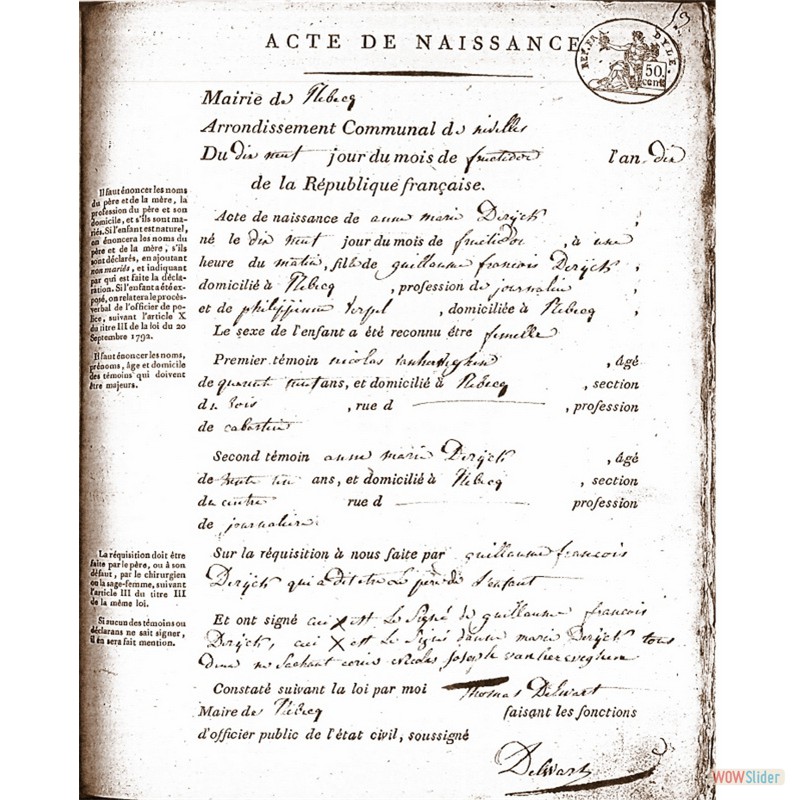 13
ACTE DE NAISSANCE
REP. FRA. DYDE.
50. cent
Mairie de Rebecq
Arrondissement Communal de nivelles
Du dix neuf jour du mois de fructidor l'an dix
de la République française.
Il faut énoncer les noms
du père et de la mère, la
profession du père et son
domicile, et s'ils sont ma-
riés. Si l'enfant est naturel,
on énoncera les noms du
père et de la mère, s'ils
sont déclarés, en ajoutant
non mariés, et indiquant
par qui est faite la décla-
ration. Si l'enfant a été ex-
posé, on relatera le procès-
verbal de l'officier de po-
lice, suivant l'article X
du titre III de la loi du 20
Septembre 1792.
Acte de naissance de anne marie Derijck ;
né le dix neuf jour du mois de fructidor , à une
heure du matin, fille de guillaume francois Derijck ;
domicilié à Rebecq , profession de journalier ,
et de philippinne , domiciliée à Rebecq ;
Le sexe de l'enfant a été reconnu être femelle
Il faut énoncer les noms,
prénoms, âge et domicile
des témoins qui doivent
être majeurs.
Premier témoin nicolas , âgé
de quarante neuf ans, et domicilié à Rebecq , section
du bois , rue d , profession
de cabartier
Second témoin anne marie Derijck , âgé
de ans, et domicilié à Rebecq , section
du centre rue d profession
de journaliere
La réquisition doit être
faite par le père, ou à son
défaut, par le chirurgien
ou la sage-femme, suivant
l'article III du titre III
de la même loi.
Sur la réquisition à nous faite par guillaume francois
Derijck qui a dit etre le pere de l'enfant
Si aucun des témoins ou
déclarans ne sait signer,
il en sera fait mention.
Et ont signé cui X est le Signé de guillaume francois
Derijck, cui X est le Signé d'anne marie Derijck tous
Deux ne Sachant ecrire Nicolas Joseph
Constaté suivant la loi par moi Thomas Delwart
Maire de Rebecq faisant les fonctions
d'officier public de l'état civil, soussigné
Delwart
WOWSlider